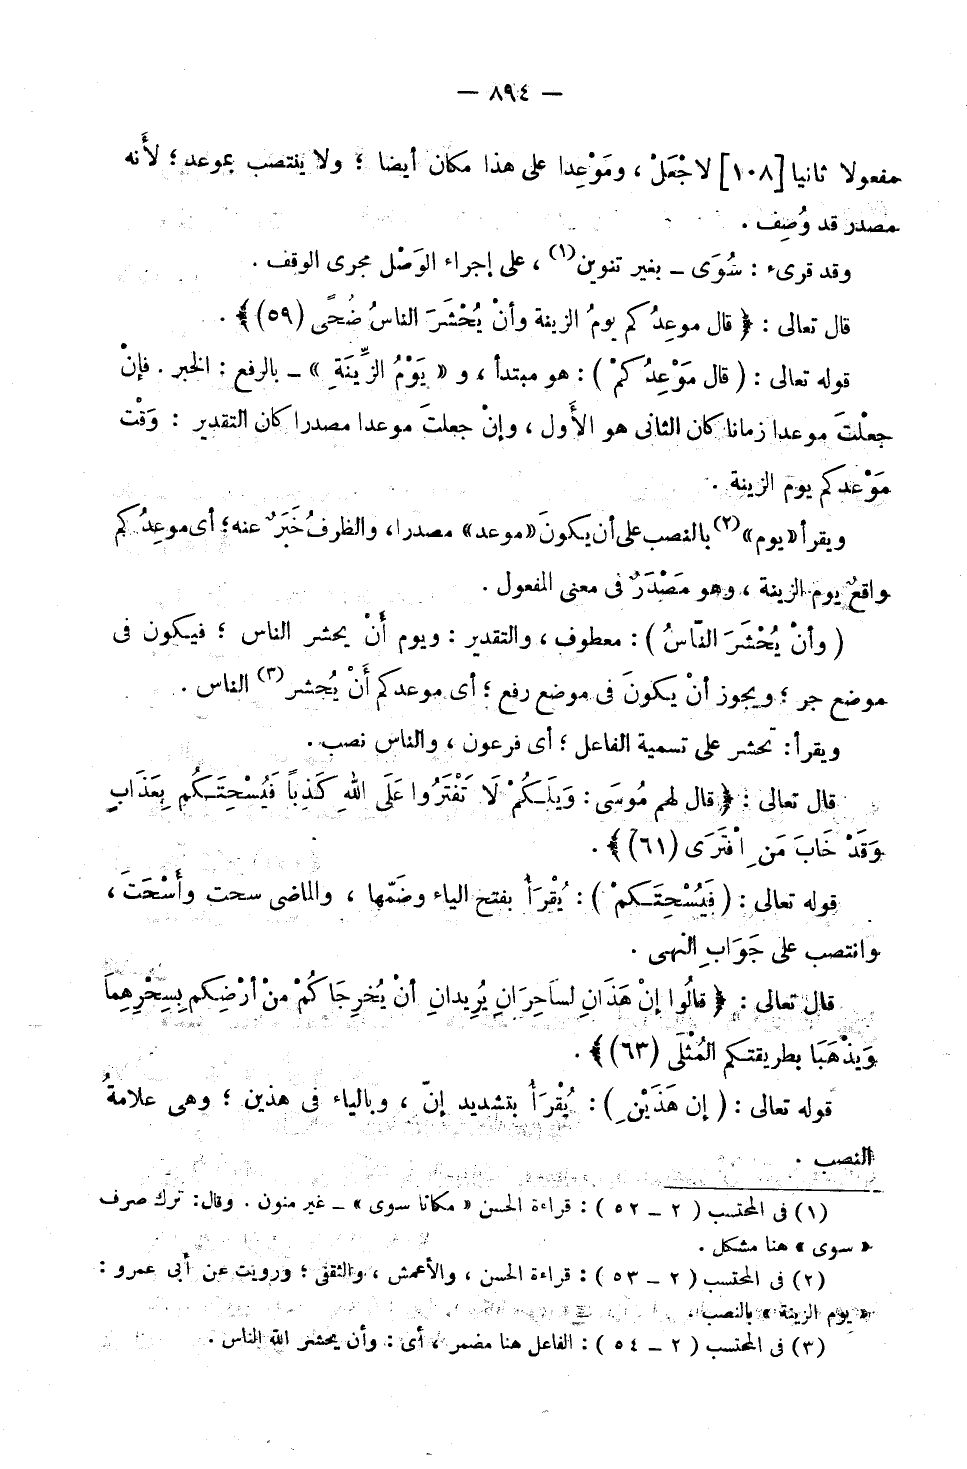 — ٨٩٤ —
مفعولا ثانيا [١٠٨] لاجْعَلْ ، ومَوْعِدا على هذا مكان أيضا ؛ ولا ينتصب بموعد ؛ لأَنه
مصدر قد وُصِف .
وقد قرىء : سُوَى — بغير تنوين(١) ، على إجراء الوَصْل مجرى الوقف .
قال تعالى : ﴿ قال موعِدُكم يومُ الزينة وأنْ يُحْشَرَ الناسُ ضُحًى (٥٩) ﴾ .
قوله تعالى : ( قال مَوْعِدُكمْ ) : هو مبتدأ ، و « يَوْمُ الزِّينَةِ » — بالرفع : الخبر . فإنْ
جعلْتَ موعدا زمانا كان الثانى هو الأَول ، وإنْ جعلتَ موعدا مصدرا كان التقدير : وَقْت
مَوْعدكم يوم الزينة .
ويقرأ « يوم » (٢) بالنصب على أن يكونَ « موعد » مصدرا ، والظرفُ خَبَرٌ عنه ؛ أى موعِدُكم
واقعٌ يوم الزينة ، وهو مَصْدَرٌ فى معنى المفعول .
( وأنْ يُحْشَرَ النّاسُ ) : معطوف ، والتقدير : ويوم أَنْ يحشر الناس ؛ فيكون فى
موضع جر ؛ ويجوز أنْ يكونَ فى موضع رفع ؛ أى موعدكم أَنْ يُحشر(٣) الناس .
ويقرأ : تَحشر على تسمية الفاعل ؛ أى فرعون ، والناس نصب .
قال تعالى : ﴿ قال لهم مُوسَى : وَيلَـكُمْ لَا تَفْتَرُوا عَلَى اللهِ كَذِباً فَيُسْحِتَـكُم بِعَذَابٍ
وَقَدْ خَابَ مَنِ افْتَرَى (٦١) ﴾ .
قوله تعالى : ( فَيُسْحِتَـكمْ ) : يُقْرَأ بفتح الياء وضَمّها ، والماضى سحت وأَسْحَتَ ،
وانتصب على جَوَابِ النهى .
قال تعالى : ﴿ قالُوا إنْ هَذَانِ لساحِرَانِ يُرِيدانِ أنْ يُخرِجَاكُمْ منْ أرْضِكم بِسِحْرِهِما
وَيذْهَبَا بطريقتـكم المُثْلَى (٦٣) ﴾ .
قوله تعالى : ( إن هَذَيْنِ ) : يُقْرَأُ بتشديد إنّ ، وبالياء فى هذين ؛ وهى علامةُ
النصب .
(١) فى المحتسب ( ٢ — ٥٢ ) : قراءة الحسن « مكانا سوى » — غير منون . وقال : ترك صرف
« سوى » هنا مشكل .
(٢) فى المحتسب ( ٢ — ٥٣ ) : قراءة الحسن ، والأعمش ، والثقفى ؛ ورويت عن أبى عمرو :
« يوم الزينة » بالنصب .
(٣) فى المحتسب ( ٢ — ٥٤ ) : الفاعل هنا مضمر ، أى : وأن يحشر الله الناس .